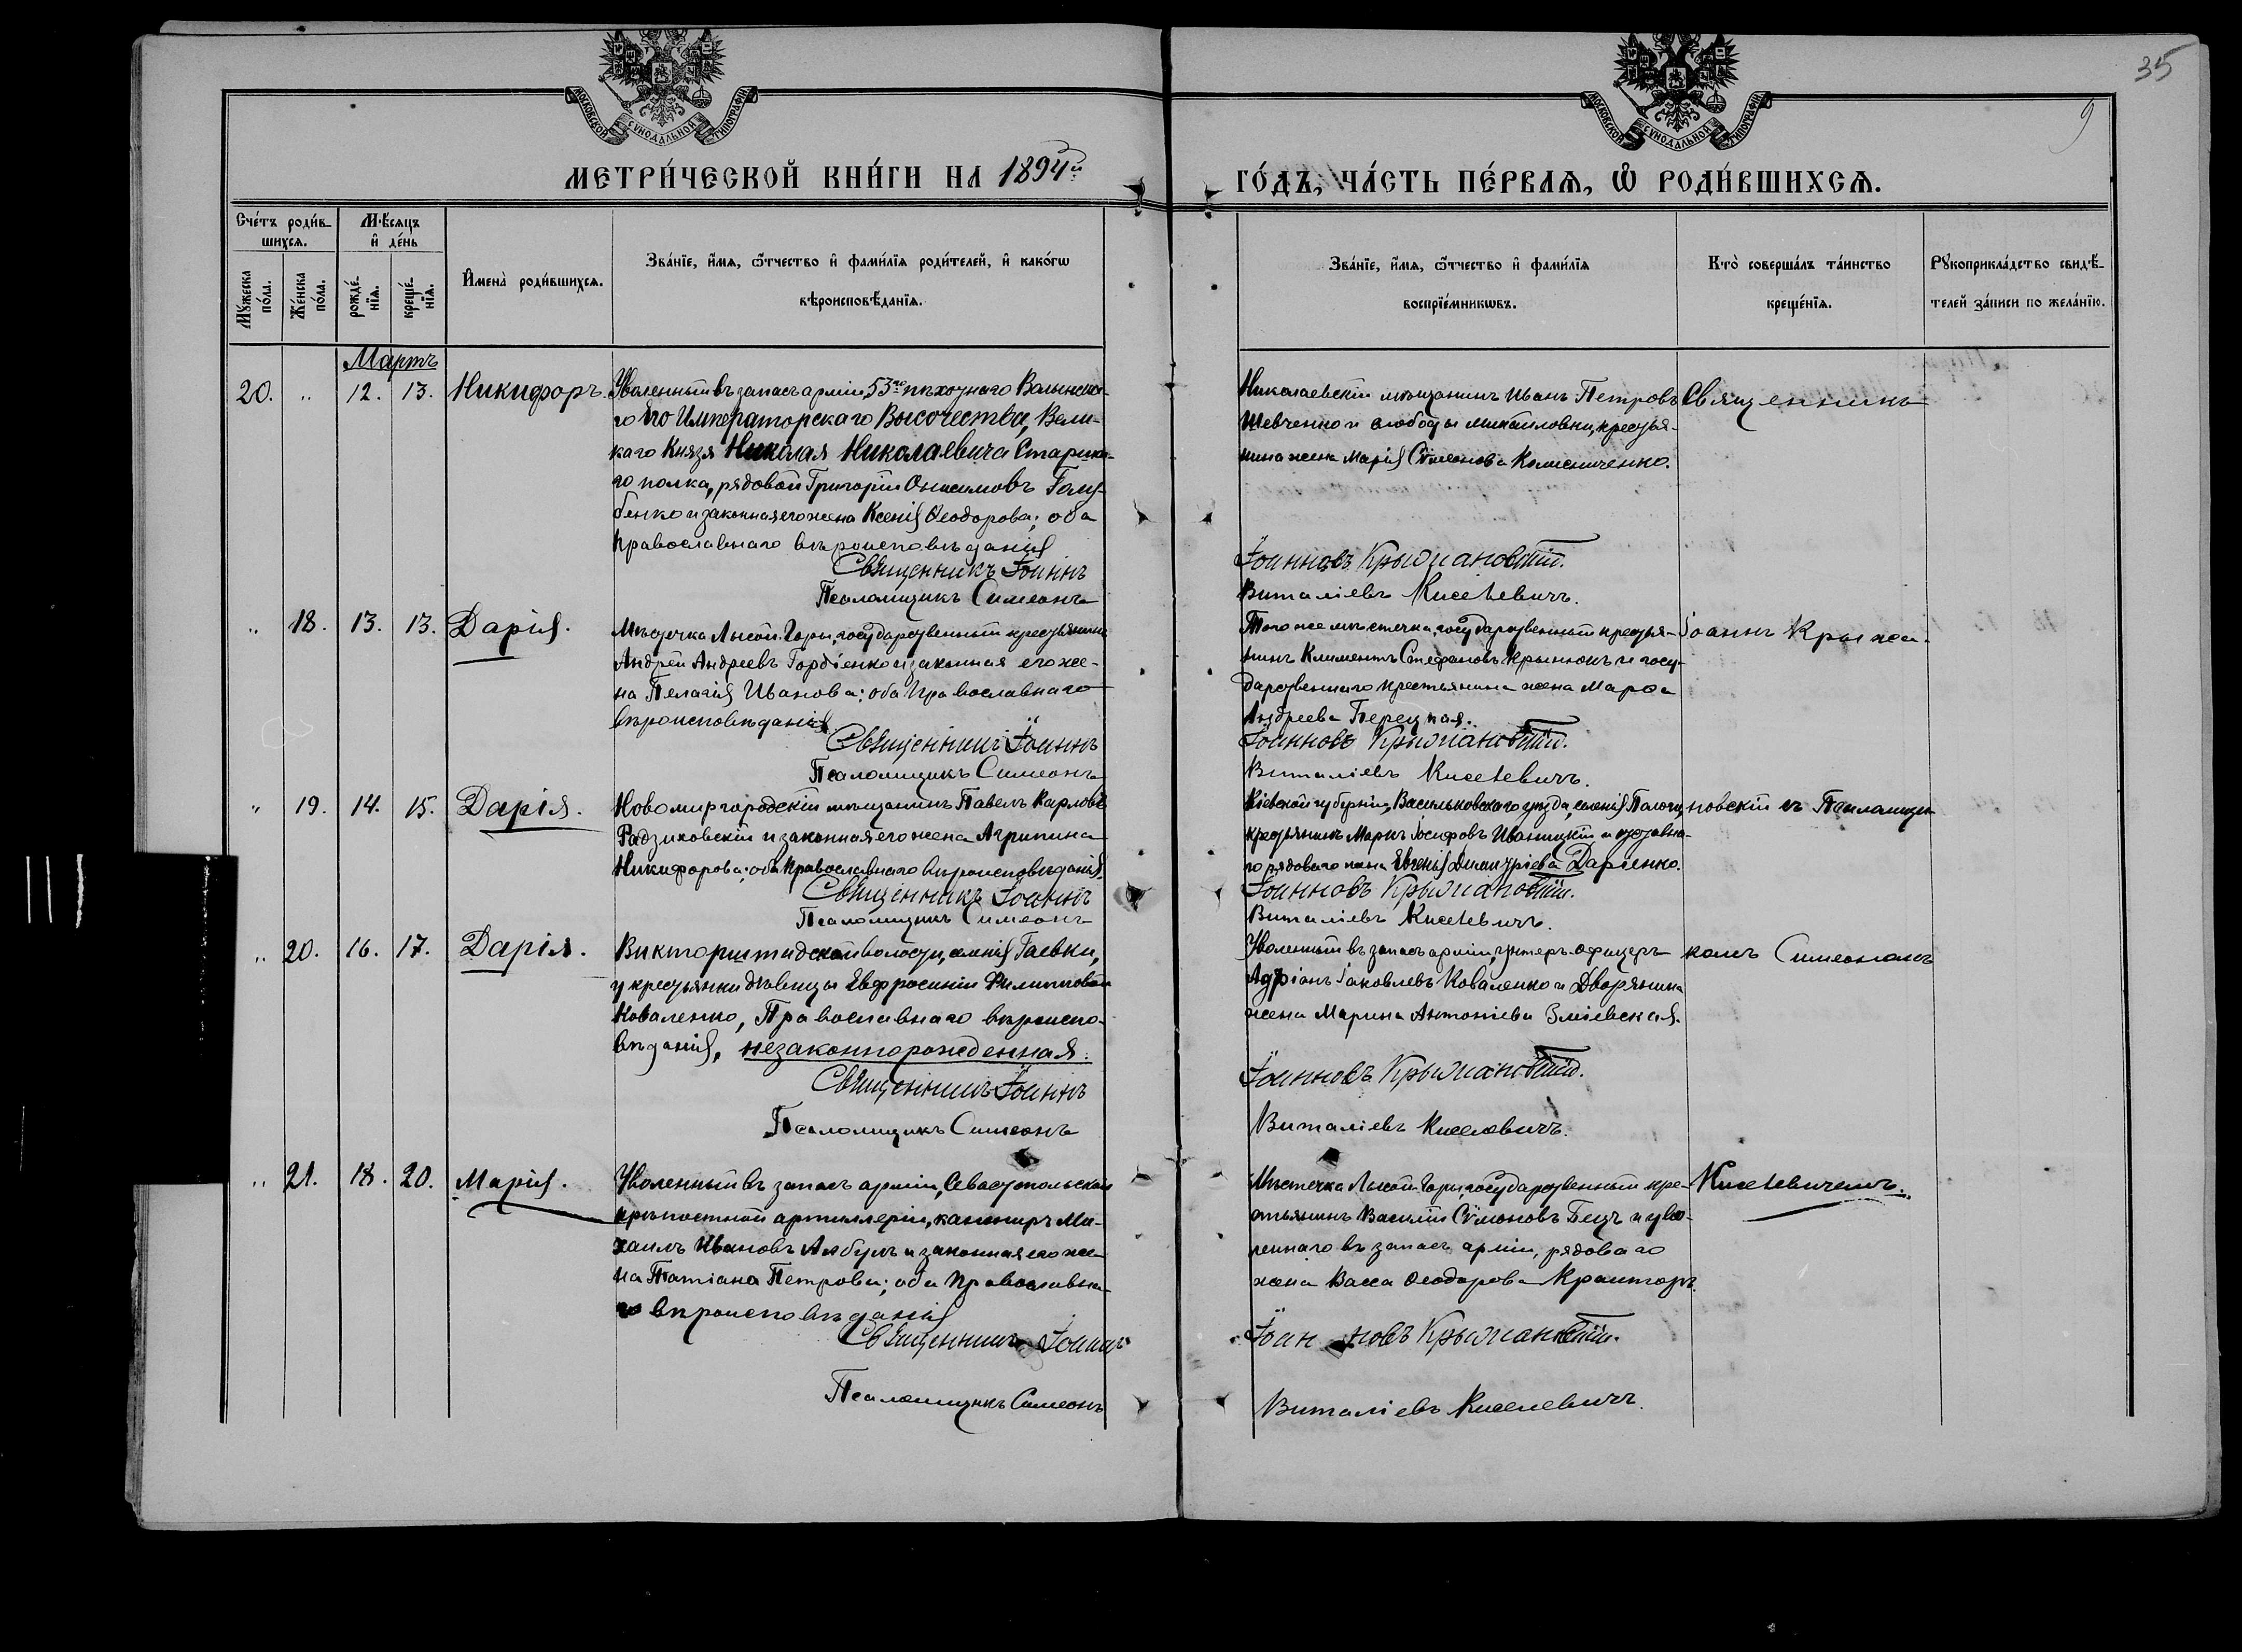 35
9
МОСКОВСКОЙ СѴНОДАЛЬНОЙ ТИПОГРАФІИ
МОСКОВСКОЙ СѴНОДАЛЬНОЙ ТИПОГРАФІИ
МЕТРИ́ЧЕСКОЙ КНИ́ГИ НА 1894й
ГО́ДЪ, ЧА́СТЬ ПЕ́РВАѦ, Ѡ҆ РОДИ́ВШИХСѦ.
Сче́тъ роди́в-
шихсѧ.
Мꙋ́жеска
по́ла.
Же́нска
по́ла.
Мѣ́сѧцъ
и҆ де́нь
рожде́-
нїѧ.
креще́-
нїѧ.
И҆мена̀ роди́вшихсѧ.
Зва́нїе, и҆́мѧ, ѻ҆́тчество и҆ фами́лїѧ роди́телей, и҆ како́гѡ
вѣроисповѣ́данїѧ.
Зва́нїе, и҆́мѧ, ѻ҆́тчество и҆ фами́лїѧ
воспрїе́мникѡвъ.
Кто̀ соверша́лъ та́инство
креще́нїѧ.
Рꙋкоприкла́дство свидѣ́-
телей за́писи по жела́нїю.
Мартъ
20. " 12. 13. Никифоръ.
Уволенный въ запасъ арміи, 53го пѣхотнаго Волынска-
го Его Императорскаго Высочества, Вели-
каго Князя Николая Николаевича Старша-
го полка, рядовой Григорій Онисимовъ Голу-
бенко и законная его жена Ксенія Ѳеодорова; оба
православнаго вѣроисповѣданія
Священникъ Іоаннъ
Псаломщикъ Симеонъ
Николаевскій мѣщанинъ Иванъ Петровъ
Шевченко и слободы Михайловки, крестья-
нина жена Марія Сѵмеонова Колисниченко.
Іоанновъ Крыжановскій.
Виталіевъ Киселевичъ.
Священникъ
" 18. 13. 13. Дарія.
Мѣстечка Лысой-Горы, государственный крестьянинъ
Андрей Андреевъ Гордіенко и законная его же-
на Пелагія Иванова; оба Православнаго
вѣроисповѣданія
Священникъ Іоаннъ
Псаломщикъ Симеонъ
Того же мѣстечка, государственный крестья-
нинъ Климентъ Стефановъ Крынюкъ и госу-
дарственнаго крестьянина жена Марѳа
Андреева
Іоанновъ Крыжановскій.
Виталіевъ Киселевичъ.
Іоаннъ Крыжа-
" 19. 14. 15. Дарія.
Новомиргородскій мѣщанинъ Павелъ Карловъ
Радзиховскій и законная его жена Агрипина
Никифорова; оба православнаго вѣроисповѣданія.
Священникъ Іоаннъ
Псаломщикъ Симеонъ
Кіевской губерніи, Васильковскаго уѣзда, селенія
крестьянинъ Маркъ Іосифовъ Иваницкій и отставна-
го рядоваго жена Евгенія Димитріева Даріенко.
Іоанновъ Крыжановскій.
Виталіевъ Киселевичъ.
новскій съ Псаломщи-
" 20. 16. 17. Дарія.
Викторштадской волости, селенія Гаевки,
у крестьянки дѣвицы Евфросиніи Филипповой
Коваленко, Православнаго вѣроиспо-
вѣданія, незаконнорожденная.
Священникъ Іоаннъ
Псаломщикъ Симеонъ
Уволенный въ запасъ арміи, унтеръ-офицеръ
Адріанъ Іаковлевъ Коваленко и Дворянина
жена Марина Антоніева Зміевская.
Іоанновъ Крыжановскій.
Виталіевъ Киселевичъ.
комъ Симеономъ
" 21. 18. 20. Марія.
Уволенный въ запасъ арміи, Севастопольской
крѣпостной артиллеріи, канониръ Ми-
хаилъ Ивановъ Албулъ и законная его же-
на Татіана Петрова; оба православна-
го вѣроисповѣданія
Священникъ Іоаннъ
Псаломщикъ Симеонъ
Мѣстечка Лысой-Горы, государственный кре-
стьянинъ Василій Сѵмеоновъ Бецъ и уво-
леннаго въ запасъ арміи, рядоваго
жена Васса Ѳеодорова
Іоанновъ Крыжановскій.
Виталіевъ Киселевичъ.
Киселевичемъ.